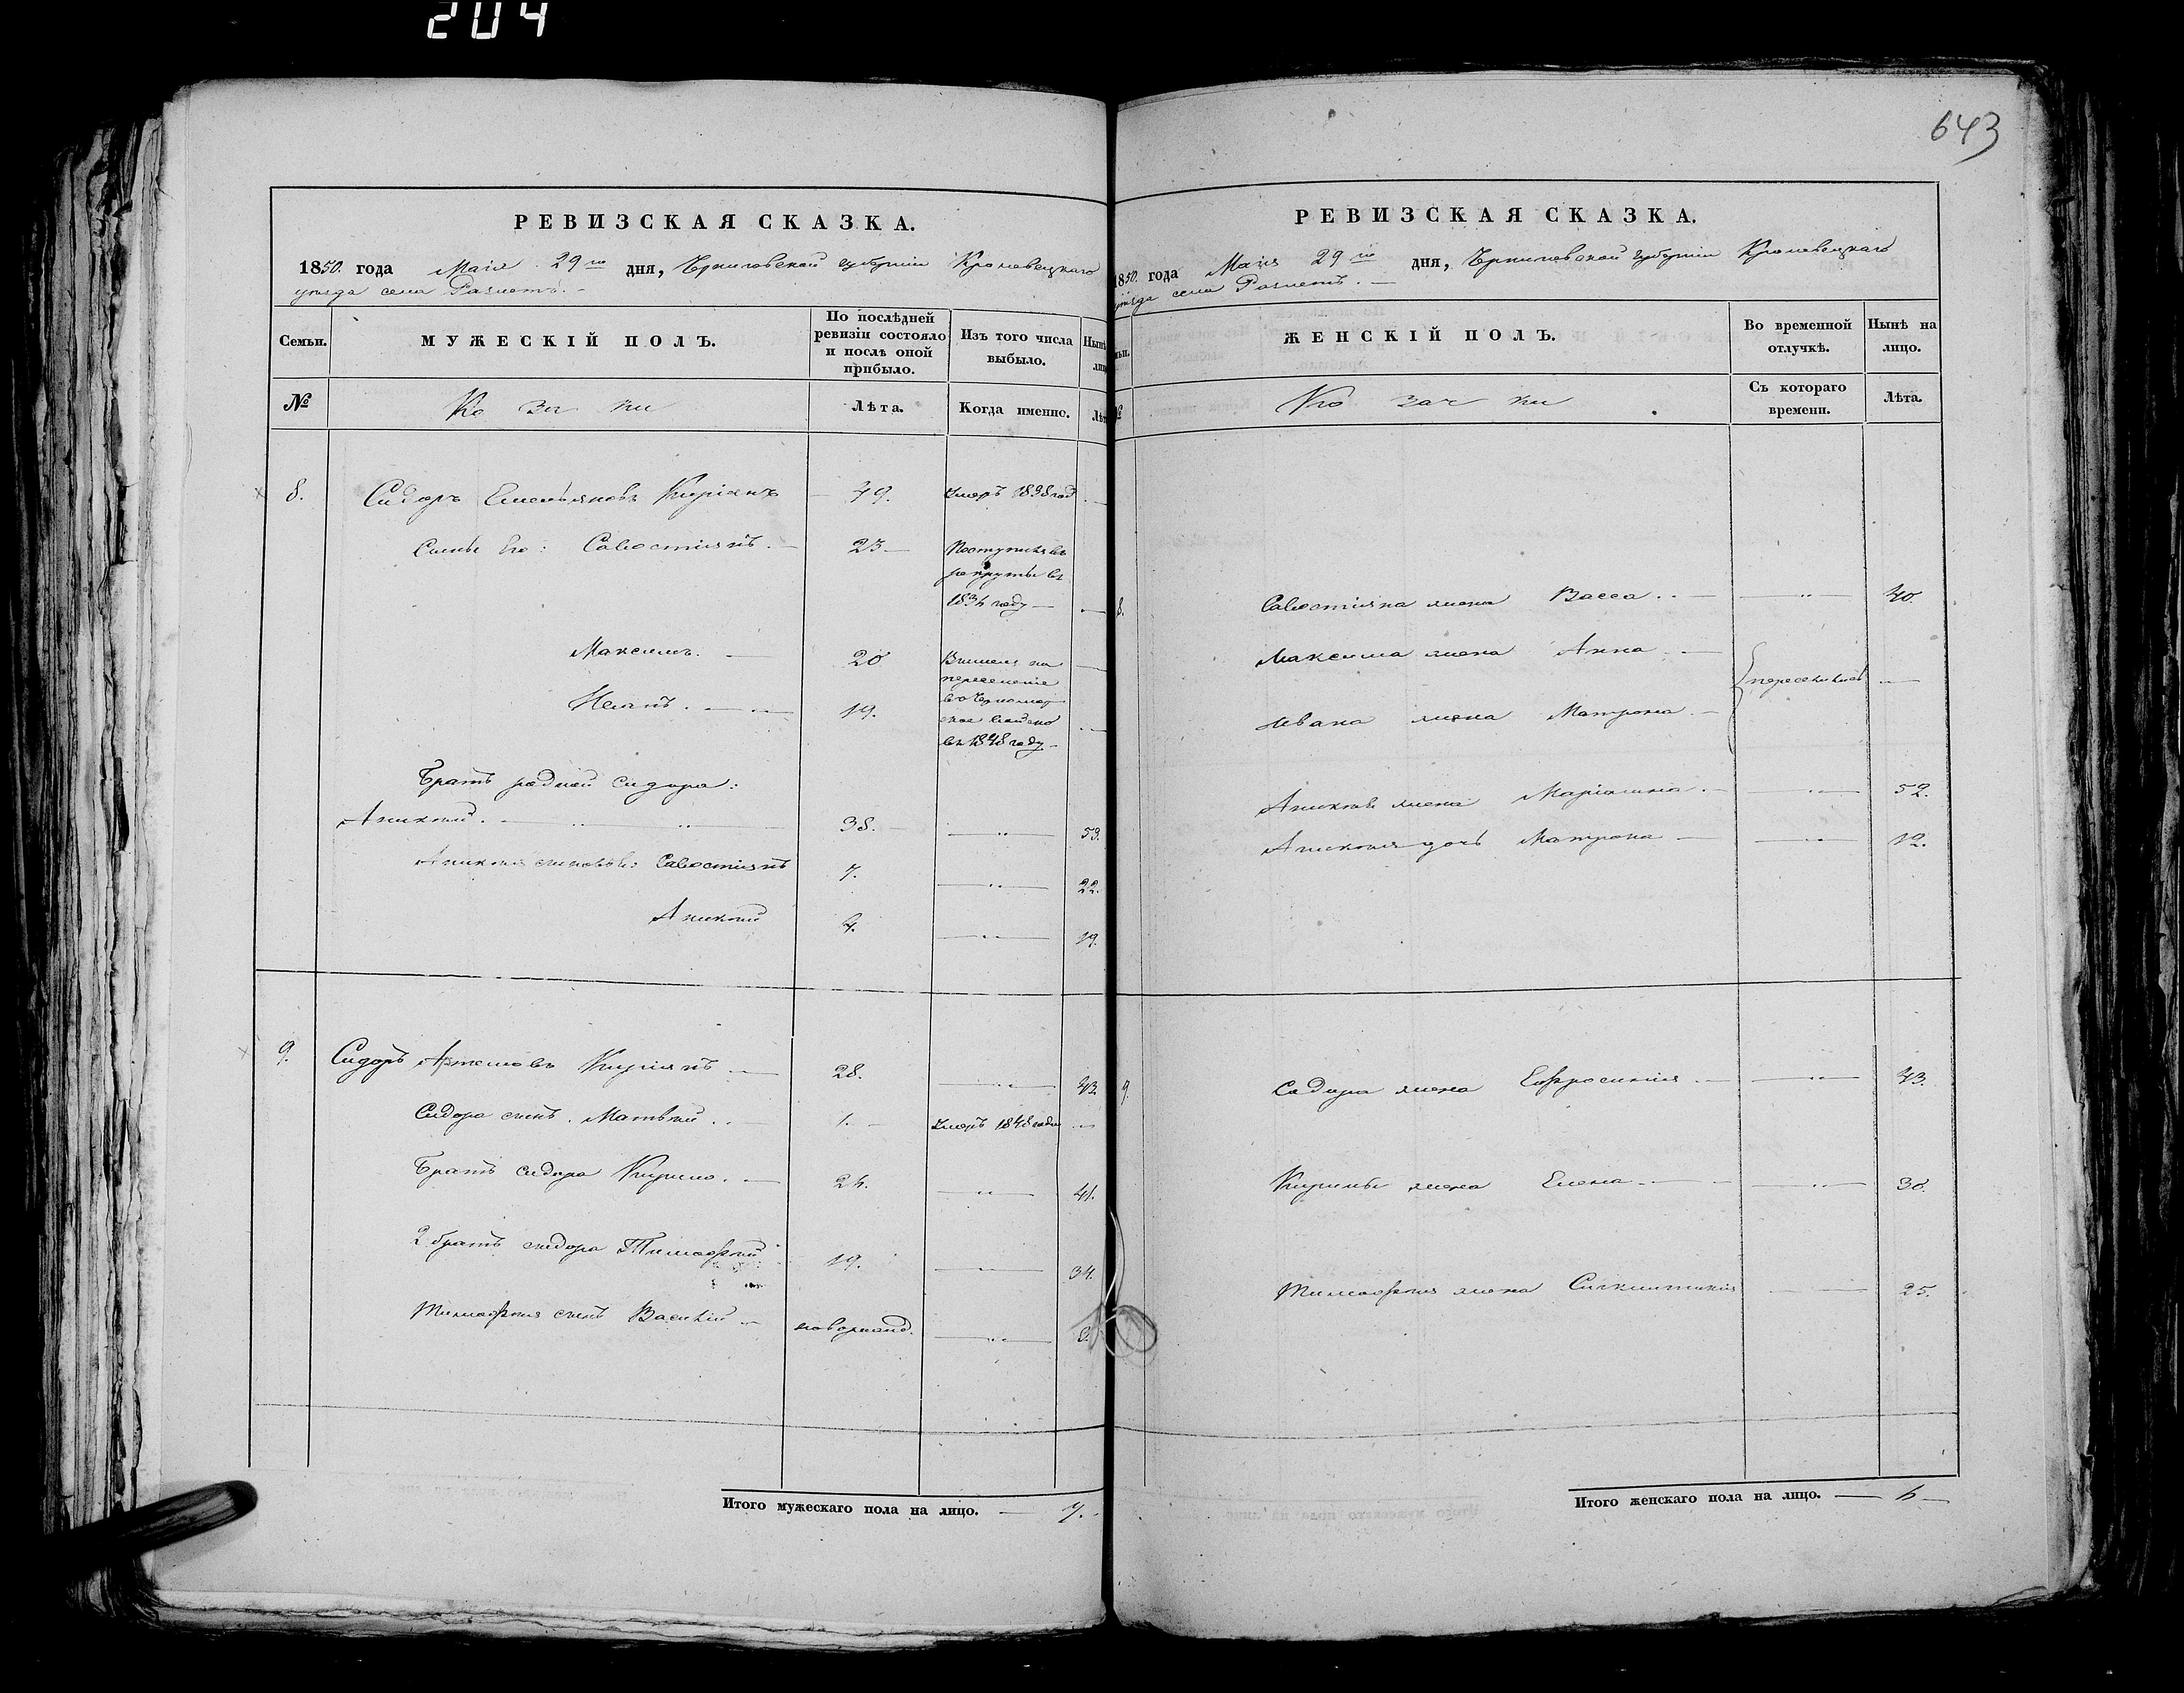 204
643
РЕВИЗСКАЯ СКАЗКА.
1850. года Маія 29го дня, Черниговской губерніи Кролевецкаго
уѣзда села Разлетъ.
Семьи.
МУЖЕСКІЙ ПОЛЪ.
По послѣдней ревизіи состояло и послѣ оной прибыло.
Изъ того числа выбыло.
Нынѣ
№
Козаки
Лѣта.
Когда именно.
8. Сидоръ Емельяновъ Киріянъ 49. Умеръ 1838 год
Сыны Его: Савостіянъ. 23 Поступилъ въ
рекруты въ
1834 году
Максимъ. 20 Вышелъ на
переселеніе
Иванъ. 19. въ Черномор
ское войско
въ 1848 году
Братъ родной Сидора:
Аникій. 38. 53.
Аникія сыновья: Савостіянъ 7. 22.
Аникій 4. 19.
9. Сидоръ Артемовъ Киріянъ 28. 43
Сидора сынъ. Матвѣй. 1. Умеръ 1848 года
Братъ Сидора Кирило. 24. 41.
2 братъ сидора Тимофѣй 19. 34.
Тимофѣя сынъ Василій новорожд. 8.
Итого мужескаго пола на лицо. 7.
РЕВИЗСКАЯ СКАЗКА.
1850. года Маія 29го дня, Черниговской губерніи Кролевецкаго
уѣзда села Разлетъ.
ЖЕНСКІЙ ПОЛЪ.
Во временной отлучкѣ.
Нынѣ на лицо.
№
Козачки
Съ котораго времени.
Лѣта.
8. Савостіяна жена Васса 40.
Максима жена Анна
переселились
Ивана жена Матрона
Аникія жена Маріамна 52.
Аникія дочь Матрона 12.
9. Сидора жена Ефросинія 43.
Кирилы жена Елена 30.
Тимофѣя жена Синклитикія 25.
Итого женскаго пола на лицо. 6